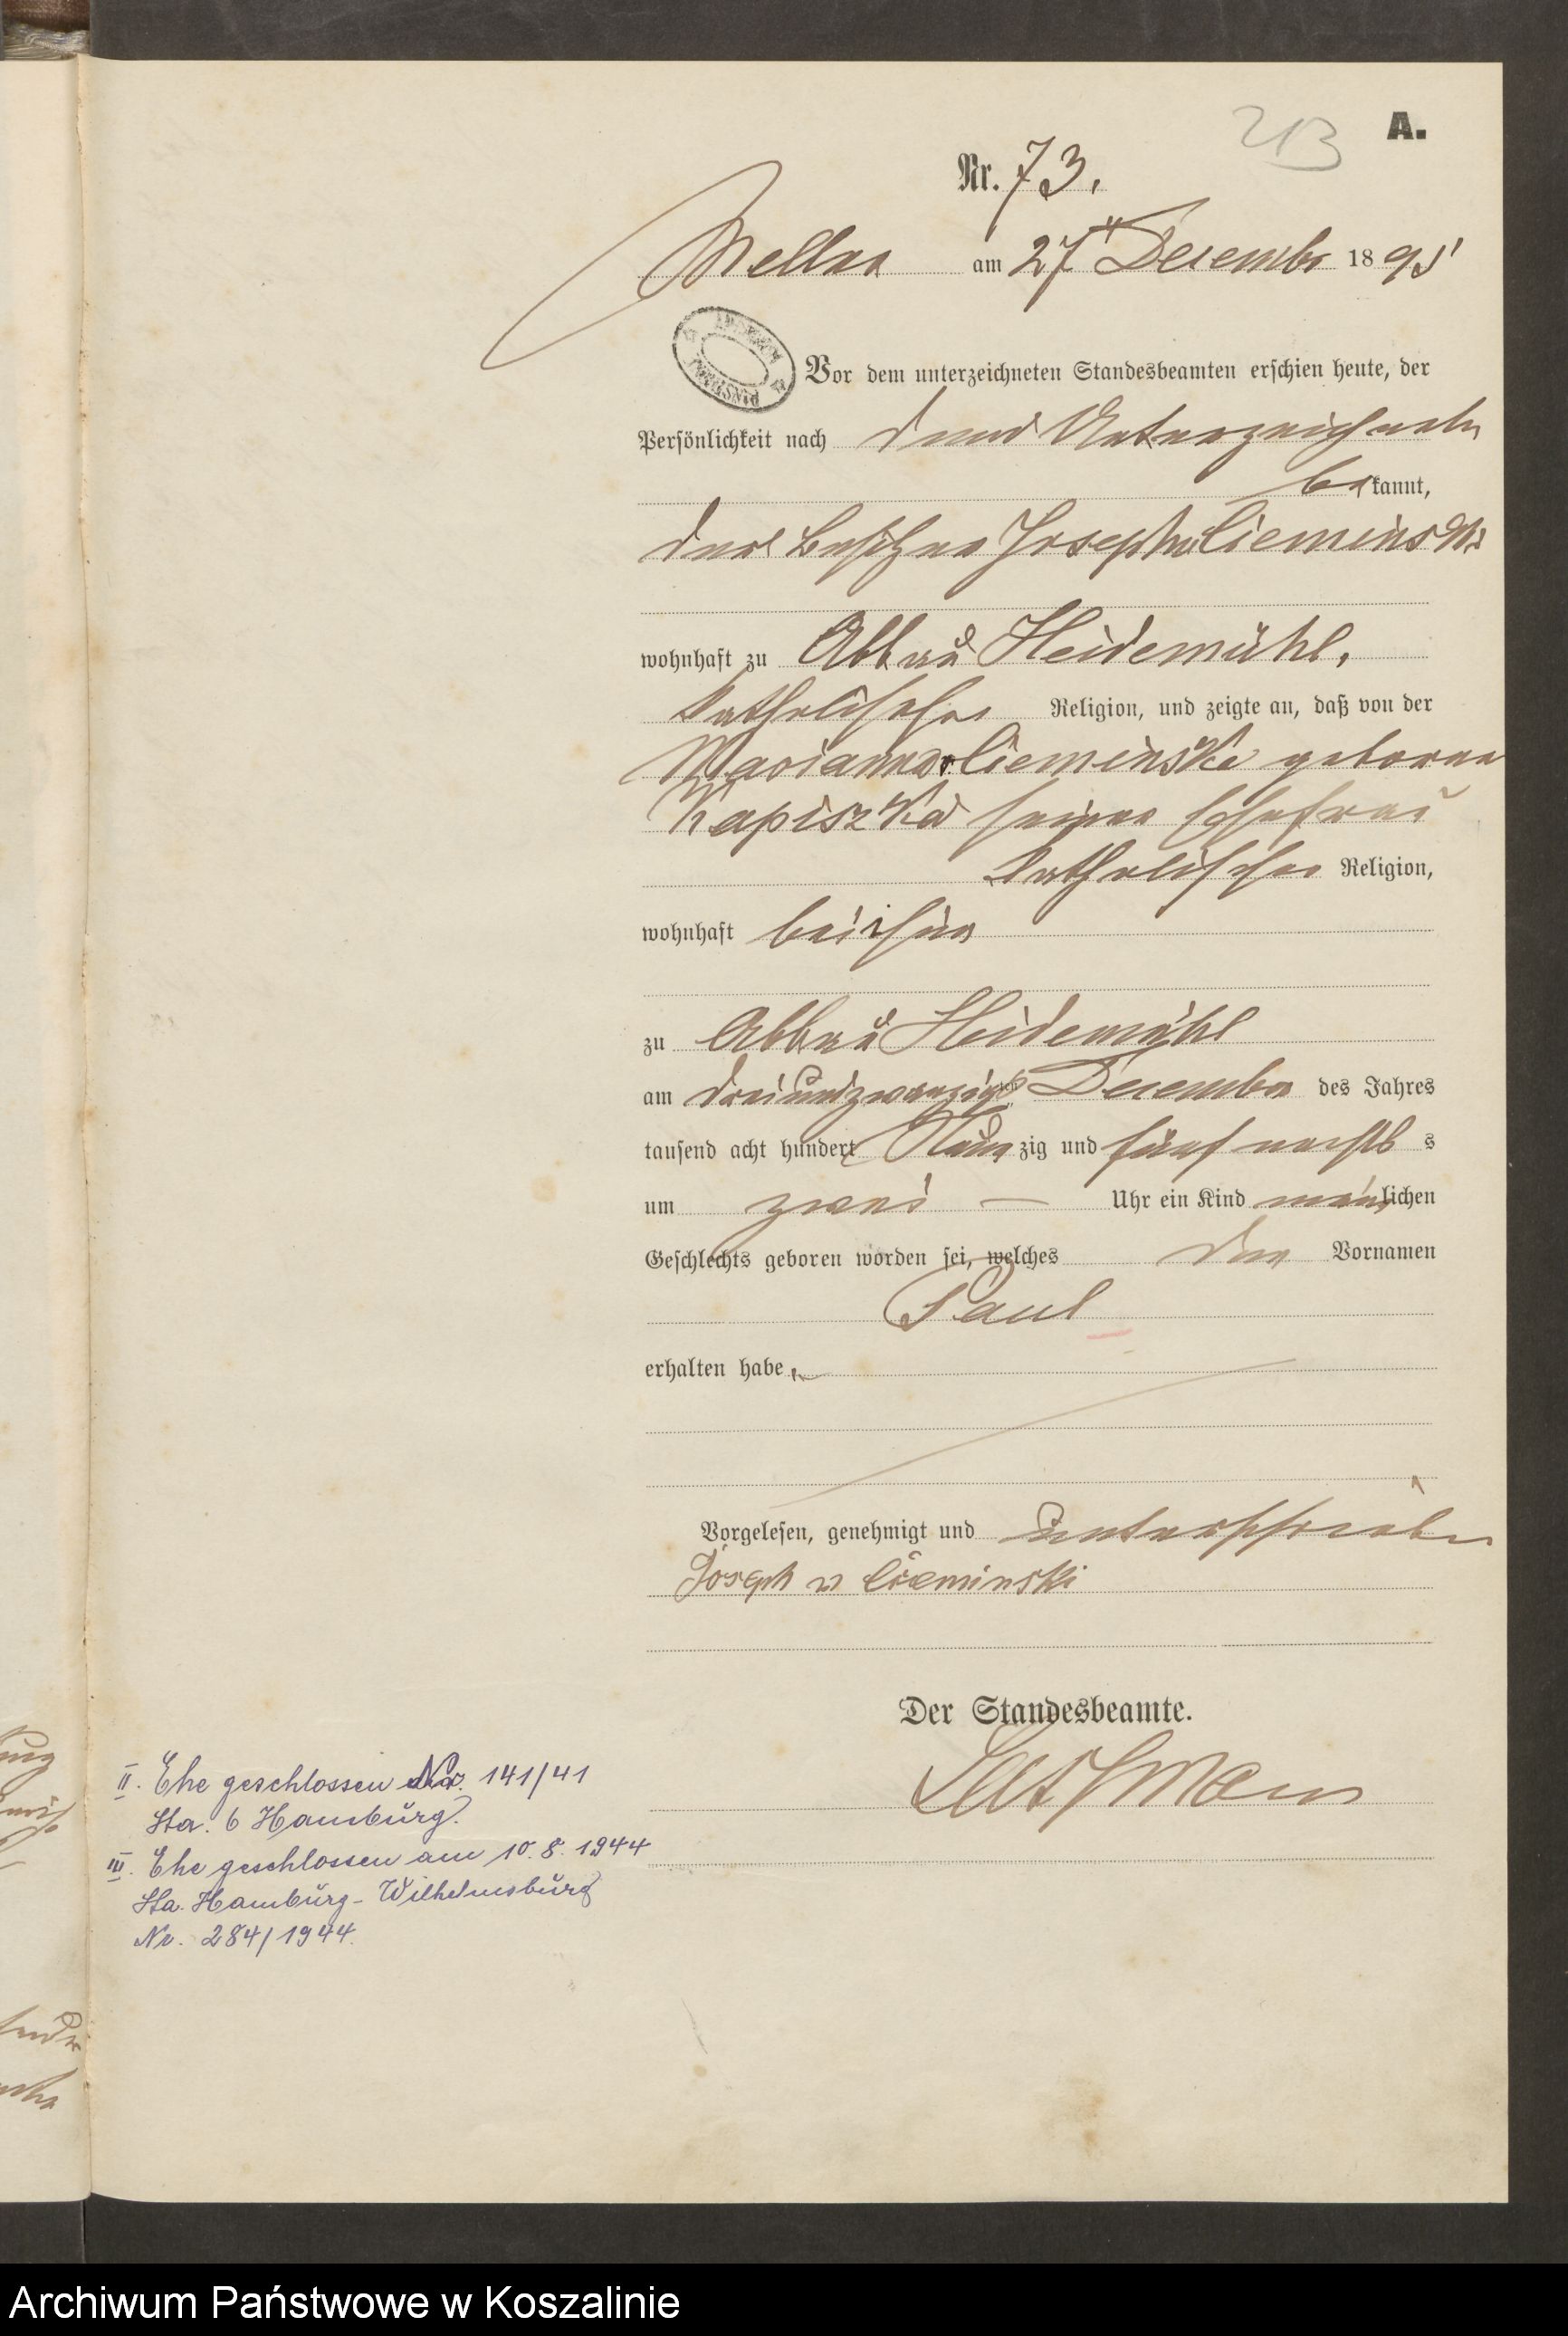 A.
213
Nr. 73.
am 27ten December 1895
Vor dem unterzeichneten Standesbeamten erschien heute, der
Persönlichkeit nach
bekannt,
der Besitzer Joseph v Cieminski
wohnhaft zu Abbau Heidemühl,
katholischer Religion, und zeigte an, daß von der
Marianna v Cieminski geborene
Kapiszka seiner Ehefrau
katholischer Religion,
wohnhaft bei ihm
zu Abbau Heidemühl
am dreiundzwanzigsten December des Jahres
tausend acht hundert Neunzig und fünf nachts
um zwei — Uhr ein Kind männlichen
Geschlechts geboren worden sei, welches den Vornamen
Paul
erhalten habe.
Vorgelesen, genehmigt und unterschrieben
Joseph v Cieminski
Der Standesbeamte.
II. Ehe geschlossen Nr. 141/41
Sta. 6 Hamburg.
III. Ehe geschlossen am 10.8.1944
Sta. Hamburg-Wilhelmsburg
Nr. 284/1944.
Archiwum Państwowe w Koszalinie